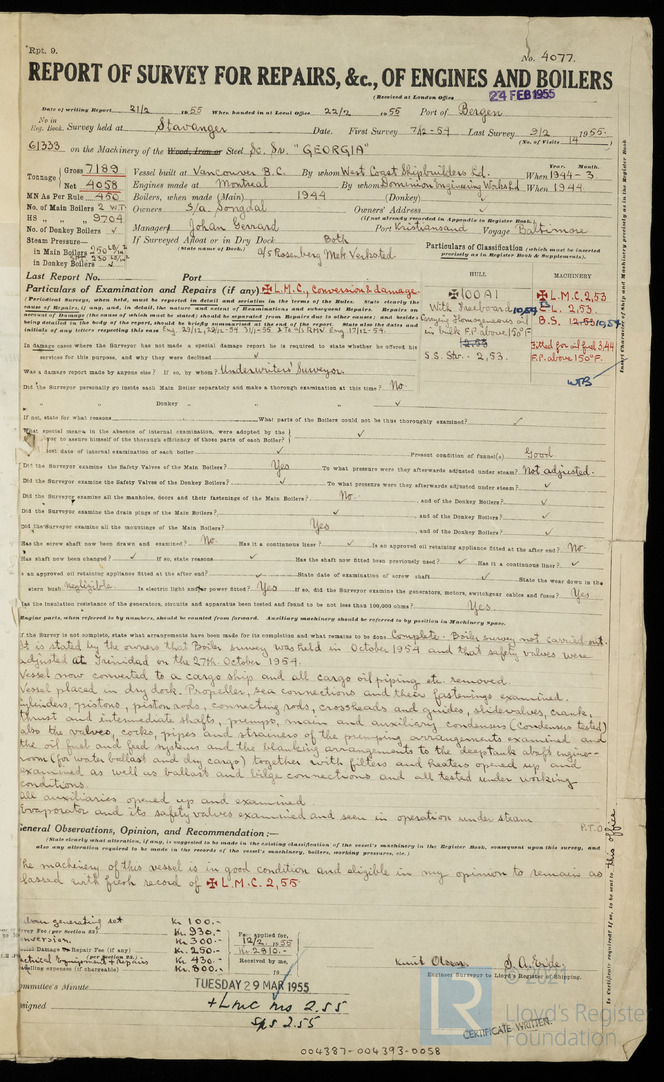 Rpt. 9.
No. 4077.
REPORT OF SURVEY FOR REPAIRS, &c., OF ENGINES AND BOILERS
(Received at London Office 24 FEB 1955
Date of writing Report 21/2 1955 When handed in at Local Office 22/2 1955 Port of Bergen
No in Reg. Book. Survey held at Stavanger Date. First Survey 7/12-54 Last Survey 9/2 1955.
(No. of Visits 14)
61333 on the Machinery of the Wood, Iron or Steel Sc. Sr. "GEORGIA"
Tonnage Gross 7189 Vessel built at Vancouver B.C. By whom West Coast Shipbuilders Ld. Year. Month. When 1944-3
Net 4058 Engines made at Montreal By whom Dominion Engineering Works Ld When 1944
MN As Per Rule 450 Boilers, when made (Main) 1944 (Donkey)
No. of Main Boilers 2 W.T. Owners S/a. Songdal Owners' Address
(if not already recorded in Appendix to Register Book.)
HS 9704
No. of Donkey Boilers Managers Johan Gerrard Port Kristiansand Voyage Baltimore
Steam Pressure— If Surveyed Afloat or in Dry Dock Both
(State name of Dock.) A/s Rosenberg Mek. Verksted
in Main Boilers 250 lb/"
in Donkey Boilers 230 lb/"
Particulars of Classification (which must be inserted precisely as in Register Book & Supplements).
Last Report No. Port
Particulars of Examination and Repairs (if any) ✠ L.M.C., Conversion & damage.
HULL
✠ 100 A1
With freeboard
Carrying Homogeneous oil
in bulk F.P. above 150°F
12.53
S.S. Str. - 2,53.
MACHINERY
✠ L.M.C. 2,53
L. 2,53.
B.S. 12.53 10,54
Fitted for oil fuel 3,44
F.P. above 150°F.
WTB
(Periodical Surveys, when held, must be reported in detail and seriatim in the terms of the Rules. State clearly the
cause of Repairs, if any, and, in detail, the nature and extent of Examinations and subsequent Repairs. Repairs on
account of Damage (the cause of which must be stated) should be separated from Repairs due to other causes; and besides
being detailed in the body of the report, should be briefly summarised at the end of the report. State also the dates and
initials of any letters respecting this case
In damage cases where the Surveyor has not made a special damage report he is required to state whether he offered his
services for this purpose, and why they were declined
Was a damage report made by anyone else? If so, by whom? Underwriters' Surveyor.
Did the Surveyor personally go inside each Main Boiler separately and make a thorough examination at this time? No.
" " Donkey " " " "
If not, state for what reasons What parts of the Boilers could not be thus thoroughly examined?
What special means in the absence of internal examination, were adopted by the
Surveyor to assure himself of the thorough efficiency of those parts of each Boiler?
last date of internal examination of each boiler Present condition of funnel(s) Good
Did the Surveyor examine the Safety Valves of the Main Boilers? Yes To what pressure were they afterwards adjusted under steam? Not adjusted.
Did the Surveyor examine the Safety Valves of the Donkey Boilers? To what pressure were they afterwards adjusted under steam?
Did the Surveyor examine all the manholes, doors and their fastenings of the Main Boilers? No. and of the Donkey Boilers?
Did the Surveyor examine the drain plugs of the Main Boilers? and of the Donkey Boilers?
Did the Surveyor examine all the mountings of the Main Boilers? Yes and of the Donkey Boilers?
Has the screw shaft now been drawn and examined? No. Has it a continuous liner? Is an approved oil retaining appliance fitted at the after end? No.
Has shaft now been changed? If so, state reasons Has the shaft now fitted been previously used? Has it a continuous liner?
Is an approved oil retaining appliance fitted at the after end? State date of examination of screw shaft State the wear down in the
stern bush negligible Is electric light and/or power fitted? Yes If so, did the Surveyor examine the generators, motors, switchgear cables and fuses? Yes
Has the insulation resistance of the generators, circuits and apparatus been tested and found to be not less than 100,000 ohms? Yes.
Engine parts, when referred to by numbers, should be counted from forward. Auxiliary machinery should be referred to by position in Machinery Space.
If the Survey is not complete, state what arrangements have been made for its completion and what remains to be done. Complete. Boiler survey not carried out.
It is stated by the owners that Boiler survey was held in October 1954 and that safety valves were
adjusted at Trinidad on the 27th October 1954.
Vessel now converted to a cargo ship and all cargo oil piping etc. removed.
Vessel placed in dry dock. Propeller, sea connections and their fastenings examined.
Cylinders, pistons, piston rods, connecting rods, crossheads and guides, slidevalves, crank,
thrust and intermediate shafts, pumps, main and auxiliary condensers (condensers tested)
also the valves, cocks, pipes and strainers of the pumping arrangements examined and
the oil fuel and feed systems and the blanking arrangements to the deeptank abaft engine-
room (for water ballast and dry cargo) together with filters and heaters opened up and
examined as well as ballast and bilge connections and all tested under working
conditions.
All auxiliaries opened up and examined
Evaporator and its safety valves examined and seen in operation under steam
P.T.O.
General Observations, Opinion, and Recommendation:—
(State clearly what alteration, if any, is suggested to be made in the existing classification of the vessel's machinery in the Register Book, consequent upon this survey, and
also any alteration required to be made in the records of the vessel's machinery, boilers, working pressures, etc.)
The machinery of this vessel is in good condition and eligible in my opinion to remain as
classed with fresh record of ✠ L.M.C. 2,55
generating set Kr 100.-
Survey Fee (per Section 23) Kr. 930.-
Conversion. Kr. 300.-
Special Damage or Repair Fee (if any) (per Section 23.) Kr. 250.-
Electrical Equipment & Repairs Kr. 430.-
Travelling expenses (if chargeable) Kr. 800.-
Fee applied for, 12/2 1955
Kr. 2810.-
Received by me,
19
Knut Olsen
Engineer Surveyor to Lloyd's Register of Shipping.
Committee's Minute TUESDAY 29 MAR 1955
Assigned + LMC ms 2.55
Sps 2.55
CERTIFICATE WRITTEN.
Insert Character of Ship and Machinery precisely as in the Register Book
Is Certificate required? If so, to be sent to this office
© 2021
LR
Lloyd's Register
Foundation
004387-004393-0058